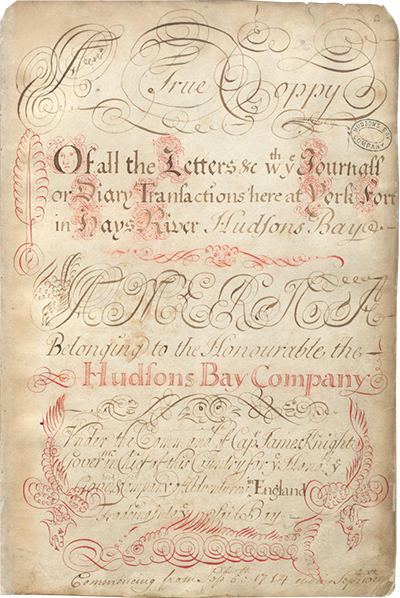 A True Coppy
HUDSONS BAY
COMPANY
Of all the Letters &c wth ye Journall
or Diary Transactions here at York Fort
in Hays River Hudsons Bay
AMERICA
Belonging to the Honourable the
Hudsons Bay Company
Under the Command of Capt James Knight
Govern in Chief of this Country for ye Hono
Company of England
Trading into
Commencing from Sept 5th 1714